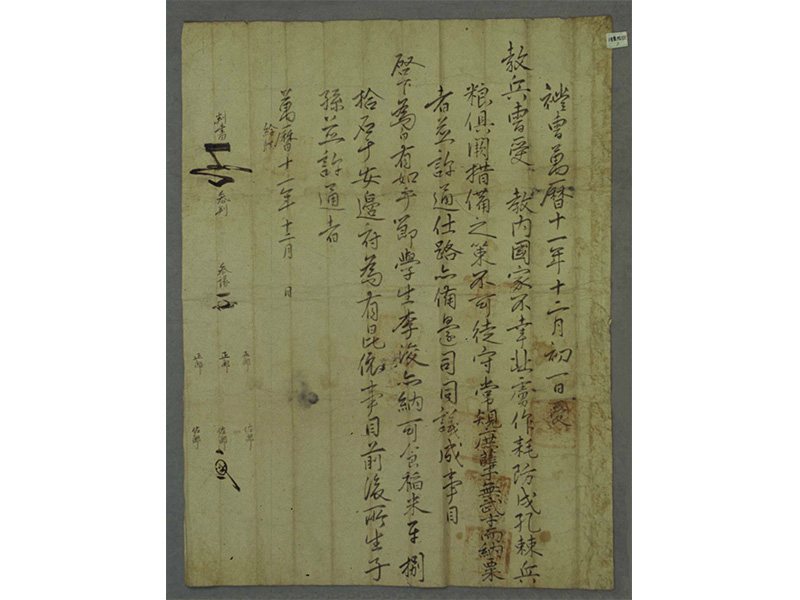 禮曹萬曆十一年十二月初一日受
敎兵曹受 敎內國家不幸北虜作耗防戍孔棘兵
粮俱闕措備之策不可徒守常規庶孼無武才而納粟
者並許通仕路亦備邊司同議成事目
啓下爲白有如乎節學生李浚亦納可食稻米平捌
拾石于安邊府爲有昆依事目前後所生子
孫並許通者
萬曆十一年十二月 日
判書 參判 參議
正郎 正郎 正郎
佐郎 佐郎 佐郎